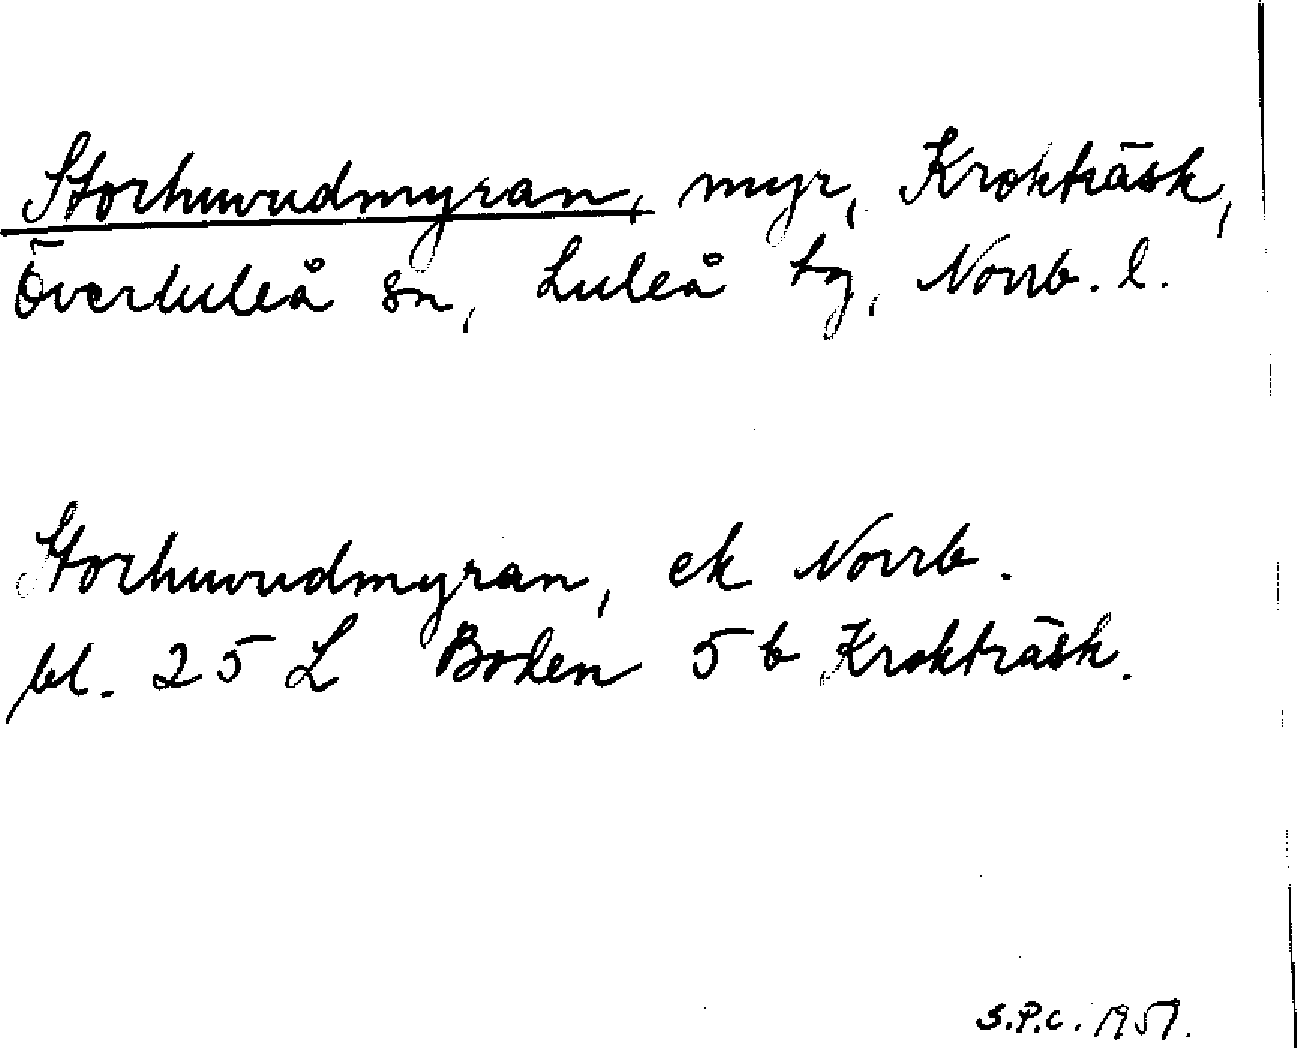 Storhuvudmyran, myr, Krokträsk,
Överluleå sn, Luleå tg, Norrb. l.
Storhuvudmyran, ek Norrb.
bl. 25 L Boden 5 b Krokträsk.
S.P.C. 1957.